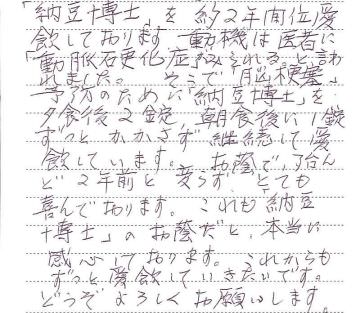 「納豆博士」を約2年間位愛
飲しております 動機は医者に
「動脈硬化症がみられる。と言わ
れました。 そこで「脳梗塞」
予防のために「納豆博士」を
夕食後2錠、朝食後に1錠
ずっとかかさず継続して愛
飲しています。 お蔭で、殆ん
ど2年前と変らず、とても
喜んでおります。 これも「納豆
博士」のお蔭だと、本当に
感心しております。 これからも
ずっと愛飲していきたいです。
どうぞよろしくお願いします。